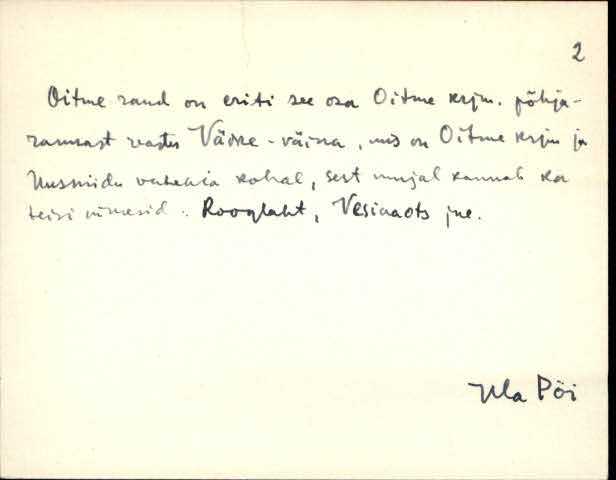 2
Oitme rand on eriti see osa Oitme krjm. põhja-
rannast vastu Väike-väina, mis on Oitme krjm ja
vahekia kohal, sest mujal kannab ka
teisi nimesid: Rooglaht, Vesiaots jne.
Pöi